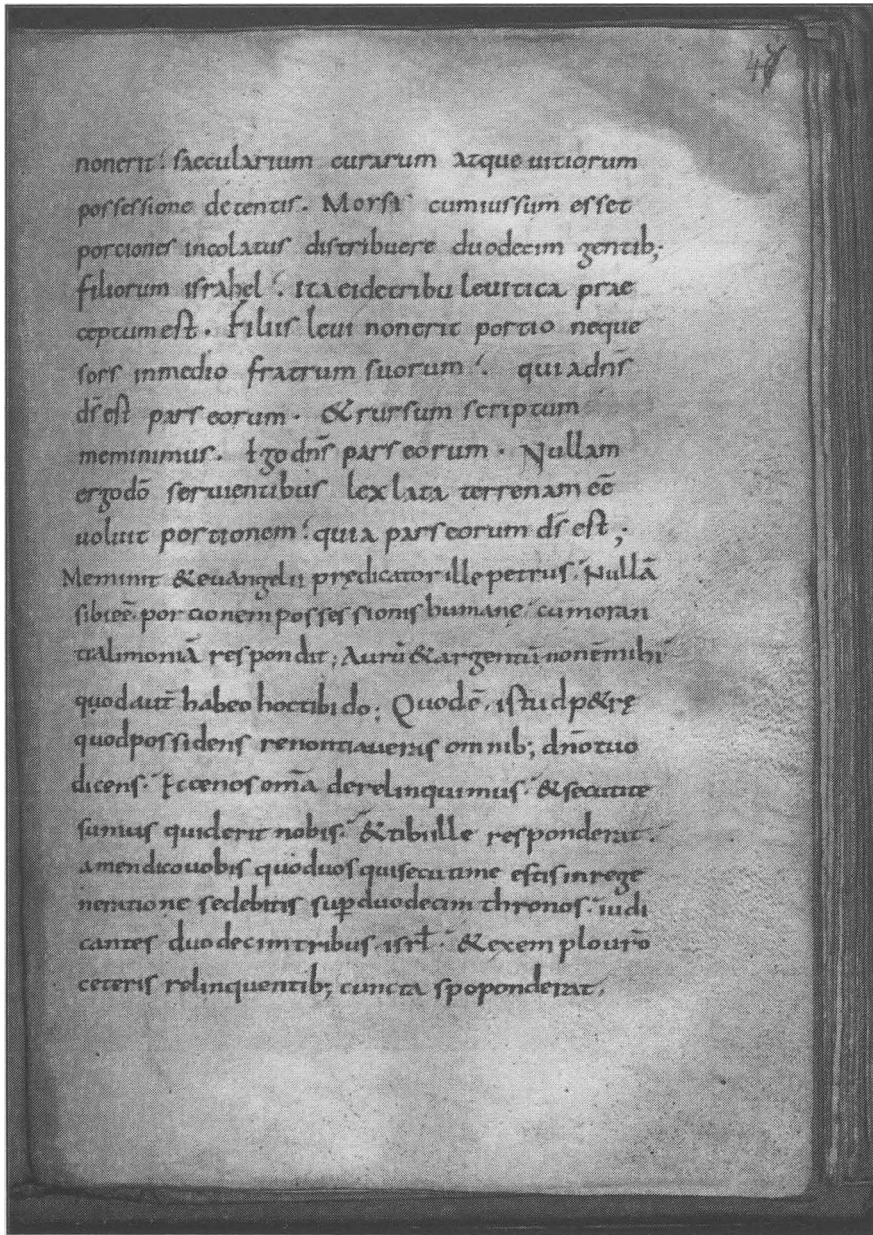 47
nonerit: saecularium curarum atque uitiorum
possessione detentis. Morsi cumiussum esset
portiones incolatus distribuere duodecim gentib;
filiorum israhel: ita eidetribu leuitica prae
ceptumest. Filiis leui nonerit portio neque
sors inmedio fratrum suorum: quiadn̄s
d̄s est pars eorum. &rursum scriptum
meminimus. Ego dn̄s pars eorum. Nullam
ergodō seruientibus lex lata terrenam eē
uoluit portionem: quia pars eorum d̄s est;
Meminit &euangelii prędicator ille petrus. Nullā
sibieē. portionem possessionis humanę. cumoran
tialimoniā respondit; Aurū &argentū nonēmihi
quodaut̄ habeo hoctibi do; Quodē. istud p&rę
quodpossidens renontiaueras omnib; dn̄otuo
dicens. Eccenos om̄a derelinquimus. &secutite
sumus quiderit nobis. &tibiille responderat.
amendicouobis quoduos quisecutime estis inrege
neratione sedebitis sup̄ duodecim thronos. iudi
cantes duodecimtribus. isrł. &exemplouro̅
ceteris relinquentib; cuncta spoponderat.